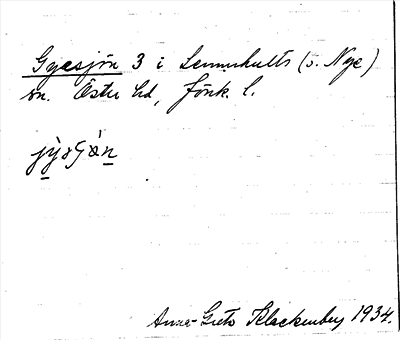 Gyesjön 3 i Lemnhults (o. Nye)
sn. Östra hd, Jönk. l.
Anna-Greta Klackenberg 1934.